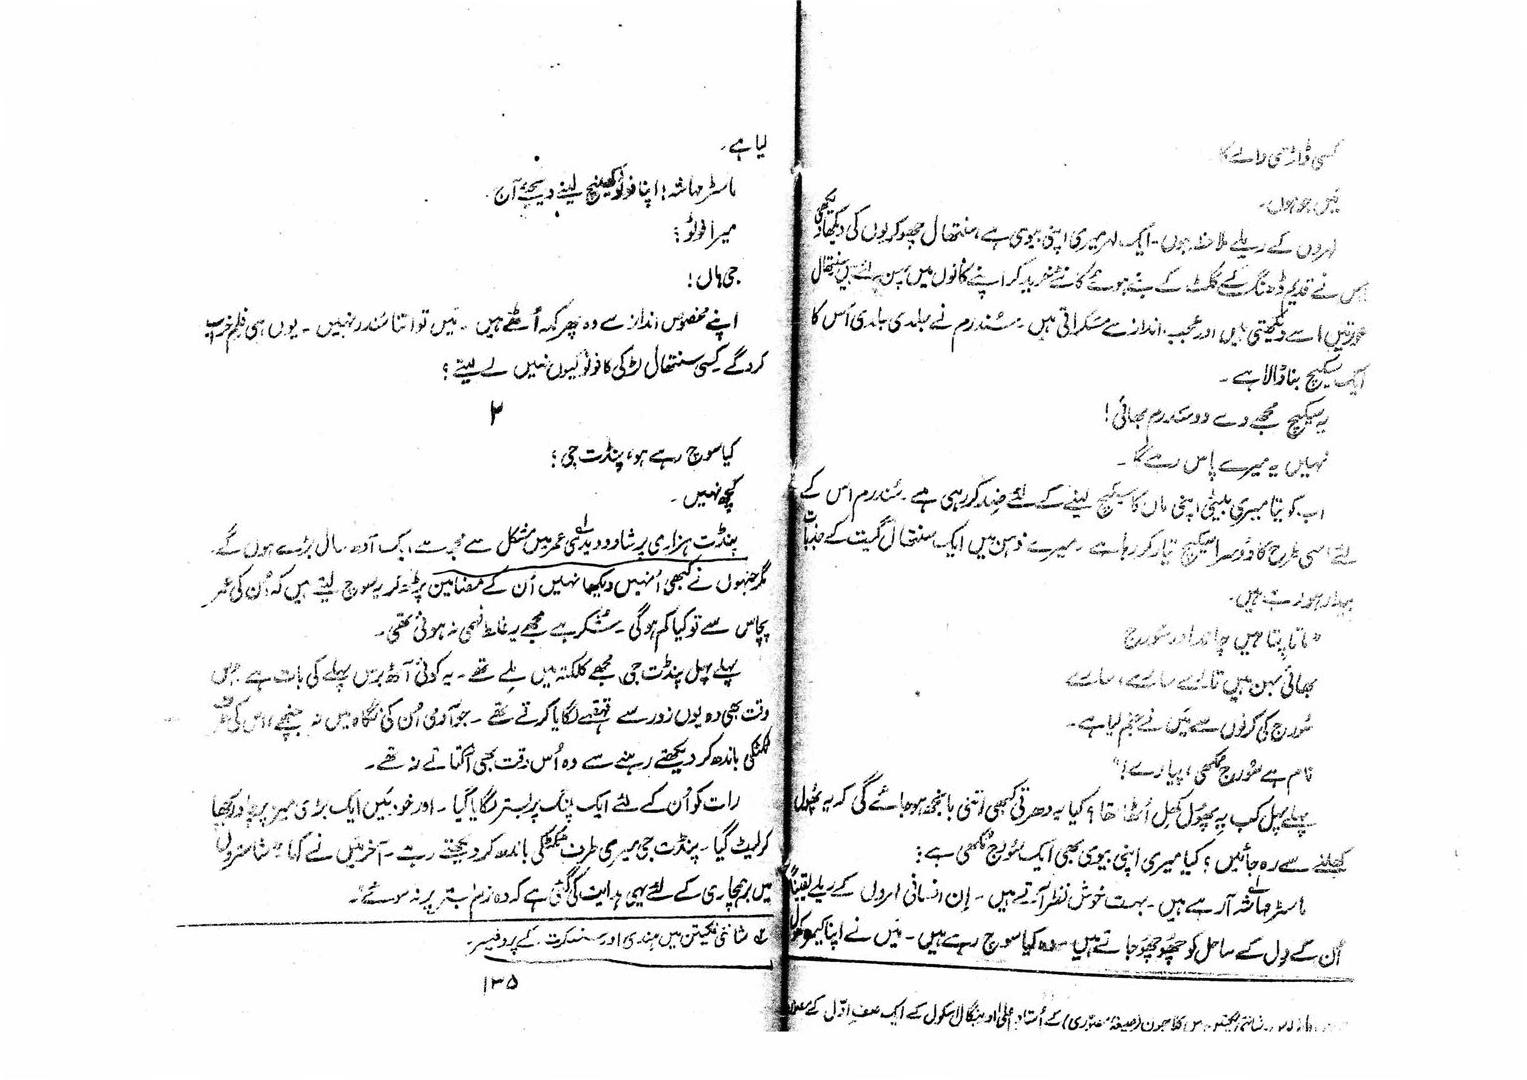 کسی ڈاڑھی والے کا
میں جو ہوں۔
لہروں کے ریلے ملاحظہ ہوں۔ ایک لہر میری اپنی بیوی ہے، سنتھال چھوکریوں کی دیکھا دیکھی
اس نے قدیم ڈھنگ کے گلٹ کے بنے ہوئے کانٹے خرید کر اپنے کانوں میں پہن لئے ہیں سنتھال
عورتیں اسے دیکھتی ہیں اور عجب انداز سے مسکراتی ہیں۔ سُندرم نے جلدی جلدی اُس کا
ایک سکیچ بنا ڈالا ہے۔
یہ سکیچ مجھے دے دو سُندرم بھائی!
نہیں یہ میرے پاس رہے گا۔
اب کویتا میری بیٹی اپنی ماں کا سکیچ لینے کے لئے ضد کر رہی ہے۔ سُندرم اس کے
لئے اسی طرح کا دوسرا سکیچ تیار کر رہا ہے۔ میرے ذہن میں ایک سنتھال گیت کے جذبات
بیدار ہو رہے ہیں۔
"ماتا پتا ہیں چاند اور سُورج
بھائی بہن ہیں تارے سارے، سارے
سُورج کی کرنوں سے میں نے جنم لیا ہے۔
نام ہے سُورج مُکھی، پیارے!"
پہلے پہل کب یہ پھول کِھل اُٹھا تھا؟ کیا یہ دھرتی کبھی اتنی بانجھ ہو جائے گی کہ یہ پھول
کِھلنے سے رہ جائیں؟ کیا میری اپنی بیوی بھی ایک سُورج مُکھی ہے؟
ماسٹر مہاشہ آ رہے ہیں۔ بہت خوش نظر آتے ہیں۔ اِن انسانی لہروں کے ریلے یقیناً
اُن کے دِل کے ساحل کو چُھو چُھو جاتے ہیں وہ کیا سوچ رہے ہیں۔ میں نے اپنا کیمرہ کھول
(صیغۂ مصوری) کے اُستادِ اعلیٰ اور بنگال اسکول کے ایک صفِ اوّل کے
لیا ہے۔
ماسٹر مہاشہ! اپنا فوٹو کھینچ لینے دیجئے آج۔
میرا فوٹو؟
جی ہاں!
اپنے مخصوص انداز سے وہ پھر کہہ اُٹھے ہیں۔ میں تو اتنا سُندر نہیں۔ یوں ہی فلم خراب
کرو گے کِسی سنتھال لڑکی کا فوٹو کیوں نہیں لے لیتے؟
۲
کیا سوچ رہے ہو، پنڈت جی؟
کچھ نہیں۔
پنڈت ہزاری پرشاد دویدی لہ عمر میں مشکل سے مجھ سے ایک آدھ سال بڑے ہوں گے۔
مگر جنہوں نے کبھی اُنہیں دیکھا نہیں اُن کے مضامین پڑھ کر یہ سوچ لیتے ہیں کہ اُن کی عمر
پچاس سے تو کیا کم ہوگی۔ شکر ہے مجھے یہ غلط فہمی نہ ہوئی تھی۔
پہلے پہل پنڈت جی مجھے کلکتہ میں مِلے تھے۔ یہ کوئی آٹھ برس پہلے کی بات ہے جس
وقت بھی وہ یوں زور سے قہقہے لگایا کرتے تھے۔ جو آدمی اُن کی نگاہ میں نہ جنچے، اس کی طرف
ٹکٹکی باندھ کر دیکھتے رہنے سے وہ اُس وقت بھی اُکتاتے نہ تھے۔
رات کو اُن کے لئے ایک پلنگ پر بستر لگایا گیا۔ اور خود میں ایک بڑی میز پر
کر لیٹ گیا۔ پنڈت جی میری طرف ٹکٹکی باندھ کر دیکھتے رہے۔ آخر میں نے کہا "شاستروں
میں برہمچاری کے لئے یہی ہدایت کی گئی ہے کہ وہ نرم بستر پر نہ سوئے"۔
لہ شانتی نکیتن میں ہندی اور سنسکرت کے پروفیسر۔
۱۳۵